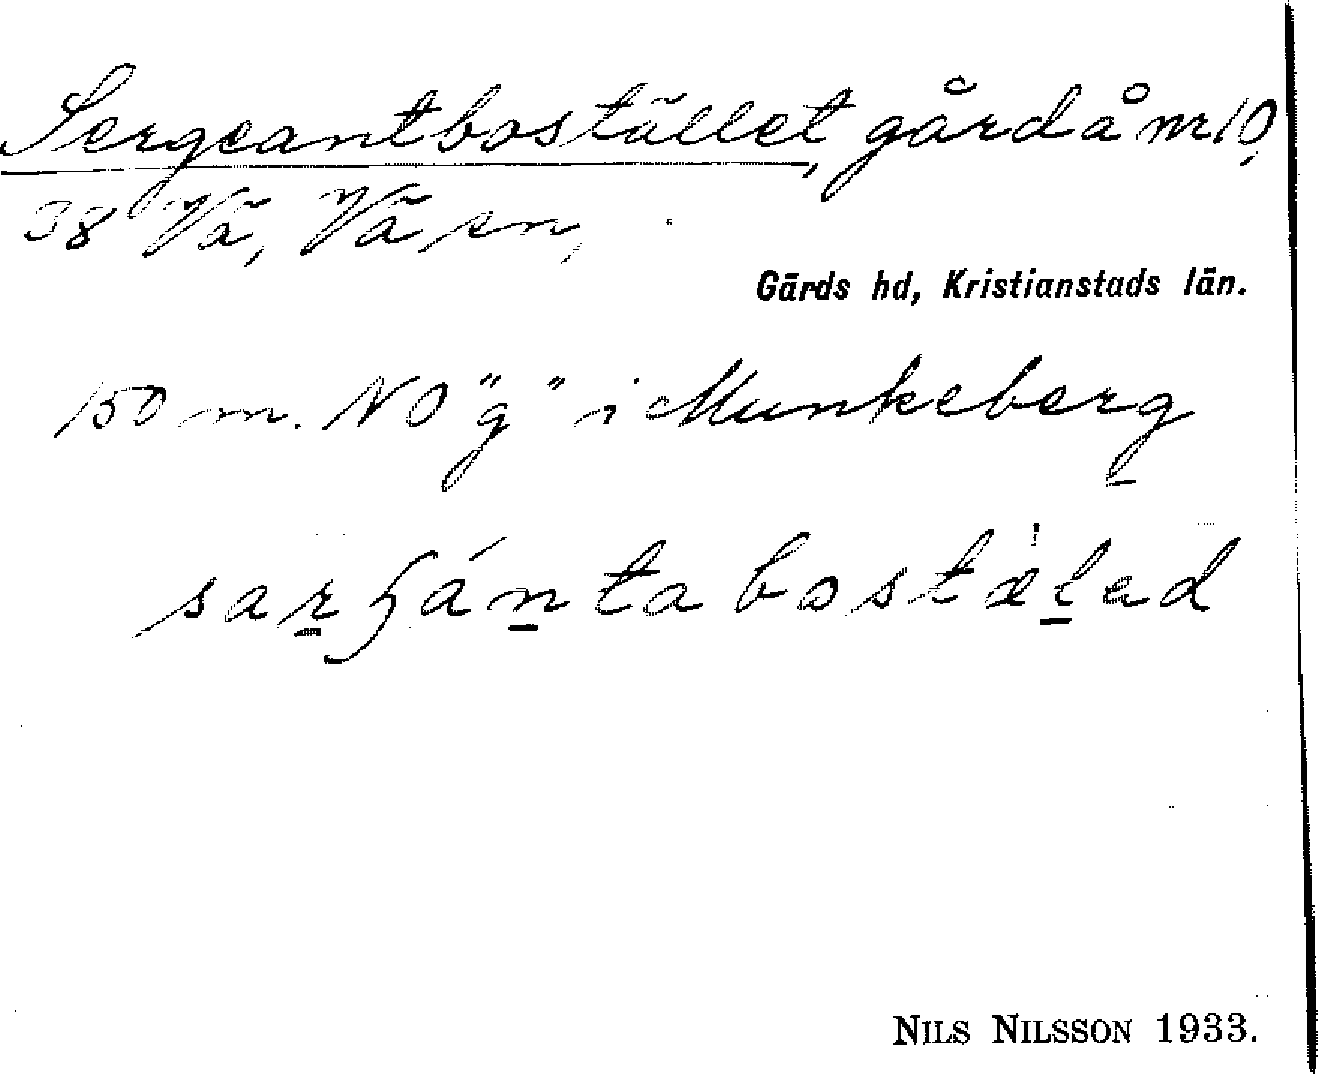 Sergeantbostället, gård å nr 10,
38 Vä, Vä sn,
Gärds hd, Kristianstads län.
150 m. NO "g" i Munkeberg
sarʃánta bostæ̀led
NILS NILSSON 1933.